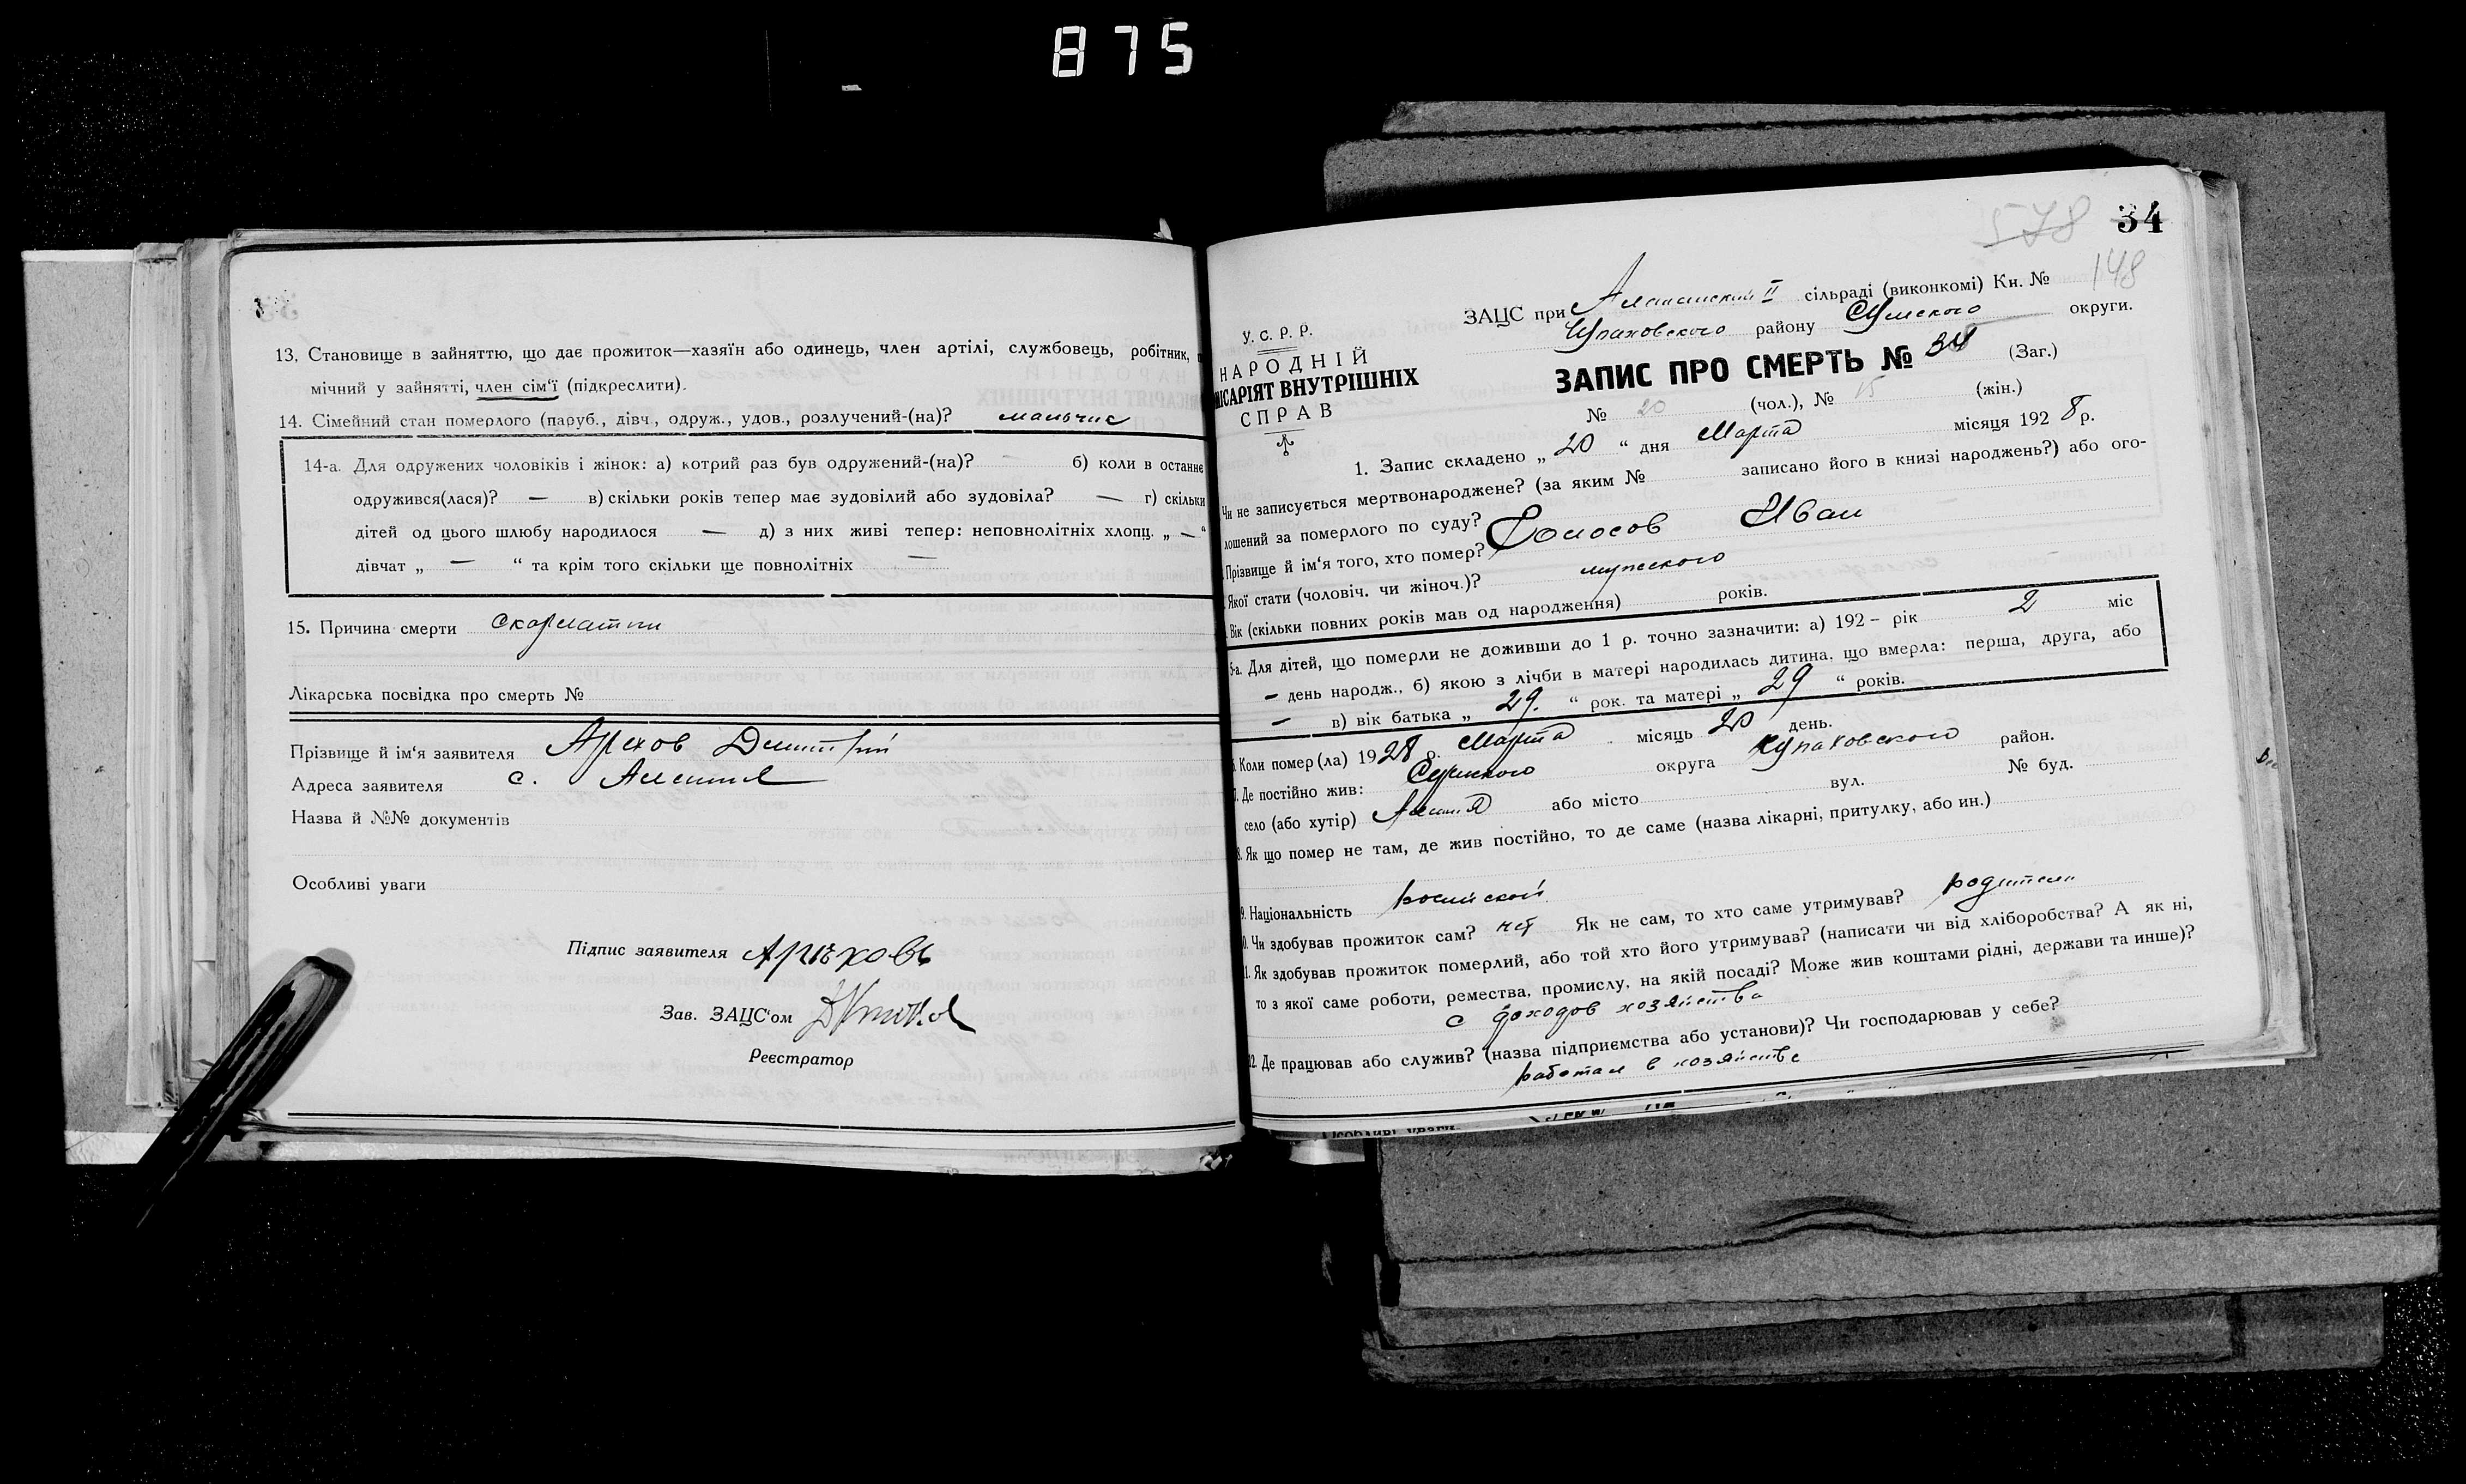 875
13. Становище в зайняттю, що дає прожиток—хазяїн або одинець, член артілі, службовець, робітник,
мічний у зайнятті, член сім‘ї (підкреслити).
14. Сімейний стан померлого (паруб., дівч., одруж., удов., розлучений-(на)? мальчик
14-а. Для одружених чоловіків і жінок: а) котрий раз був одружений-(на)? — б) коли в останнє
одружився(лася)? — в) скільки років тепер має зудовілий або зудовіла? — г) скільки
дітей од цього шлюбу народилося — д) з них живі тепер: неповнолітніх хлопц. „ — “
дівчат „ — “ та крім того скільки ще повнолітніх —
15. Причина смерти Скорлатин
Лікарська посвідка про смерть №
Прізвище й ім‘я заявителя Арехов Дмитрий
Адреса заявителя с.
Назва й №№ документів
Особливі уваги
Підпис заявителя Арѣховъ
Зав. ЗАЦС‘ом
Реєстратор
34
578
148
У. С. Р. Р.
НАРОДНІЙ
МІСАРІЯТ ВНУТРІШНІХ
СПРАВ
ЗАЦС при II сільраді (виконкомі) Кн. №
району Сумского округи.
ЗАПИС ПРО СМЕРТЬ № 34 (Заг.)
№ 20 (чол.), № 15 (жін.)
1. Запис складено „ 20 “ дня Марта місяця 1928 р.
Чи не записується мертвонароджене? (за яким № записано його в книзі народжень?) або ого-
лошений за померлого по суду?
Прізвище й ім‘я того, хто помер? Голосов Иван
Якої стати (чоловіч. чи жіноч.)? мужского
Вік (скільки повних років мав од народження) років.
5-а. Для дітей, що померли не доживши до 1 р. точно зазначити: а) 192 – рік 2 міс
– день народж., б) якою з лічби в матері народилась дитина, що вмерла: перша, друга, або
— в) вік батька „ 29. “ рок. та матері „ 29 “ років.
Коли помер(ла) 1928 р. Марта місяць 20 день.
7. Де постійно жив: Сумского округа район.
село (або хутір) або місто вул. № буд.
8. Як що помер не там, де жив постійно, то де саме (назва лікарні, притулку, або ин.)
9. Національність
10. Чи здобував прожиток сам? нет Як не сам, то хто саме утримував? родители
11. Як здобував прожиток померлий, або той хто його утримував? (написати чи від хліборобства? А як ні,
то з якої саме роботи, ремества, промислу, на якій посаді? Може жив коштами рідні, держави та инше)?
с доходов хозяйства
12. Де працював або служив? (назва підприємства або установи)? Чи господарював у себе?
работал в хозяйстве